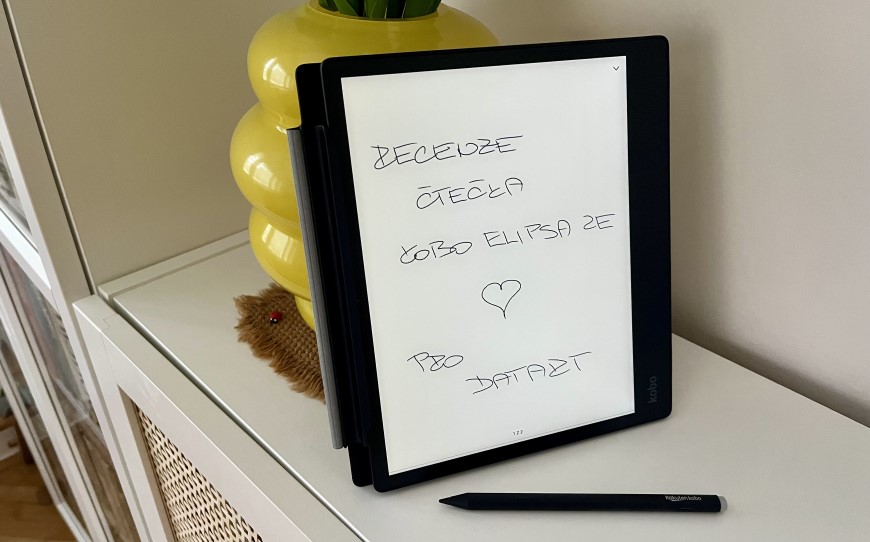 RECENZE
ČTEČKA
KOBO ELIPSA 2E
PRO
DATART
122
kobo
Rakuten kobo